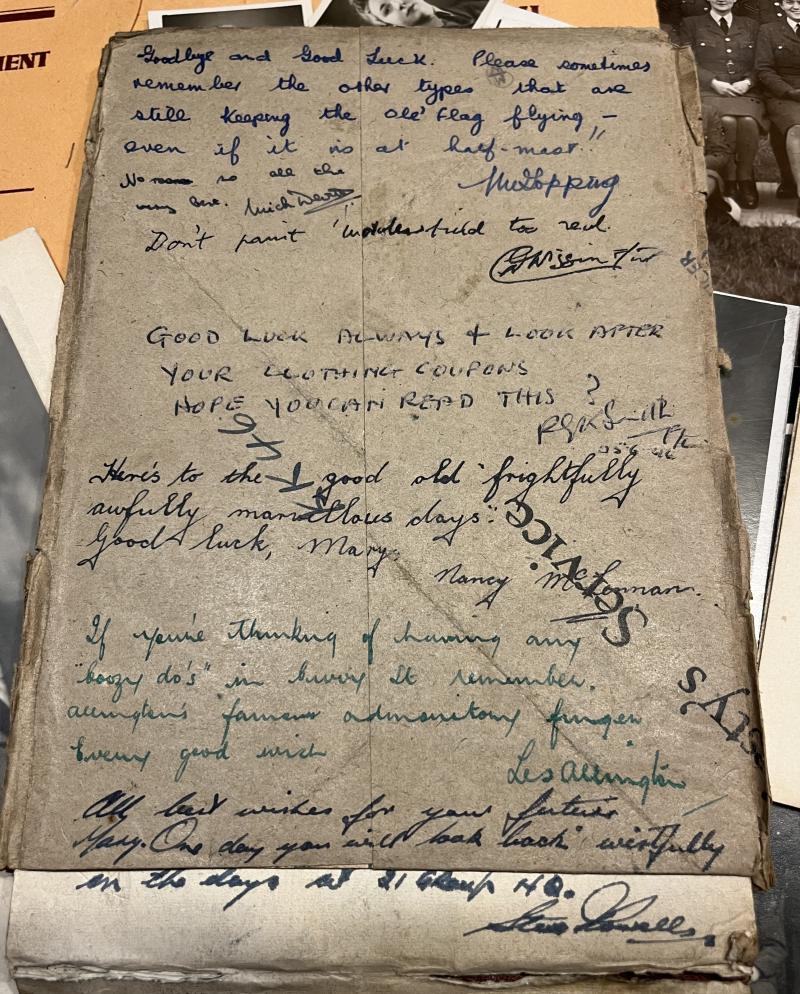 MENT
Goodbye and Good Luck. Please sometimes
remember the other types that are
still keeping the ole' Flag flying –
even if it is at half-mast!!
No room so all the
very best.
Don't paint Huddersfield too red.
GOOD LUCK ALWAYS + LOOK AFTER
YOUR CLOTHING COUPONS
HOPE YOU CAN READ THIS ?
RGK Smith
Here's to the good old "frightfully
awfully marvellous days".
Good luck, Mary.
Nancy McLennan.
Service
If you're thinking of having any
"boozy do's" in remember.
Allington's famous admonitory finger
Every good wish
Les Allington
sty's
All best wishes for your future
Mary. One day you will look back wistfully
on the days at 21 Group HQ.